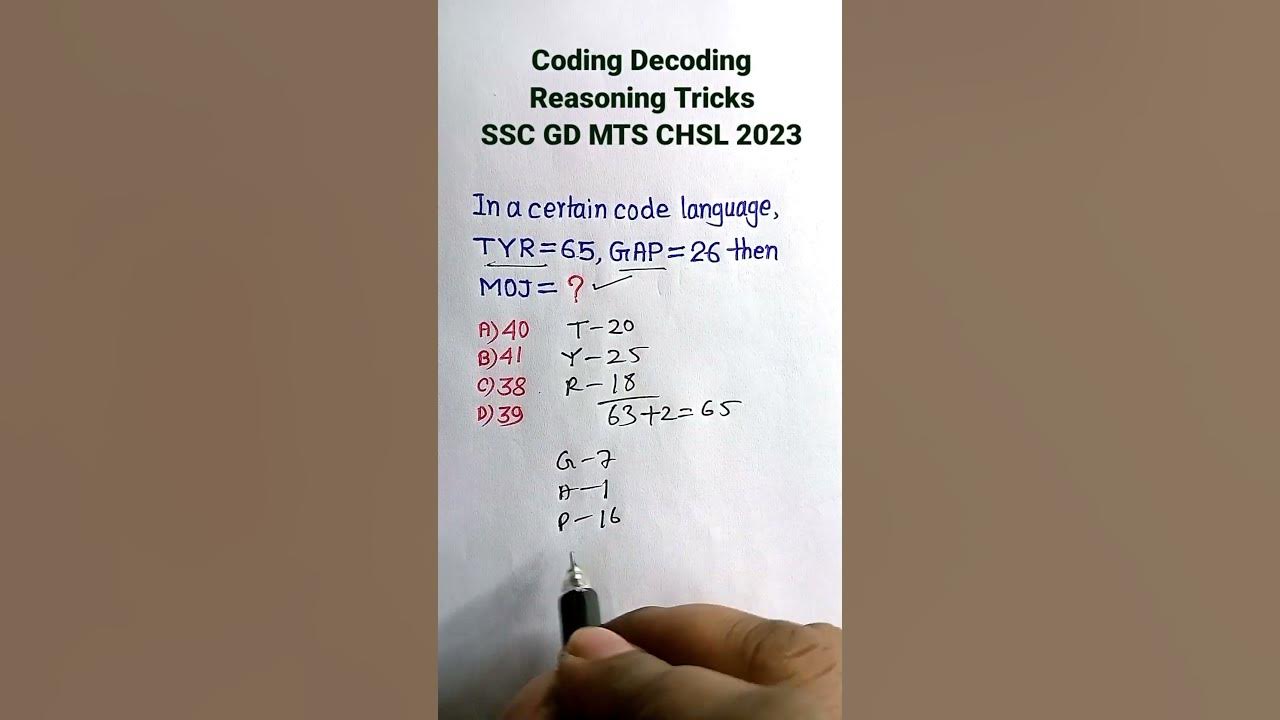 Coding Decoding
Reasoning Tricks
SSC GD MTS CHSL 2023
In a certain code language,
TYR=65, GAP=26 then
MOJ= ?
A) 40
B) 41
C) 38
D) 39
T-20
Y-25
R-18
63+2=65
G-7
A-1
P-16